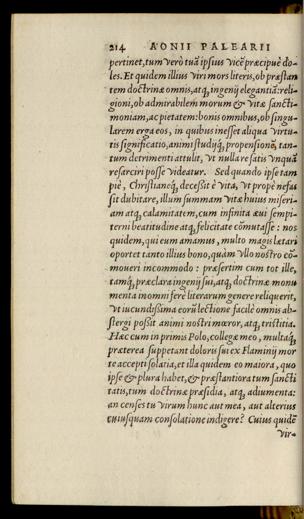 214 AONII PALEARII
pertinet, tum verò tuã ipsius vicẽ præcipuè do-
les. Et quidem illius viri mors literis, ob præstan
tem doctrinæ omnis, atq́; ingenij elegantiã: reli-
gioni, ob admirabilem morum & vitæ sancti-
moniam, ac pietatem: bonis omnibus, ob singu-
larem erga eos, in quibus inesset aliqua virtu-
tis significatio, animi studiũq́; propensionẽ, tan-
tum detrimenti attulit, vt nulla re satis vnquã
resarciri posse videatur. Sed quando ipse tam
piè, Christianeq́; decessit è vita, vt propè nefas
sit dubitare, illum summam vitæ huius miseri-
am atq́; calamitatem, cum infinita æui sempi-
terni beatitudine atq́; felicitate cõmutasse: nos
quidem, qui eum amamus, multo magis lætari
oportet tanto illius bono, quàm vllo nostro cõ-
moueri incommodo: præsertim cum tot ille,
tamq́; præclara ingenij sui, atq́; doctrinæ monu
menta in omni ferè literarum genere reliquerit,
vt iucundissima eorũ lectione facilè omnis ab-
stergi possit animi nostri mœror, atq́; tristitia.
Hæc cum in primis Polo, collegæ meo, multaq́;
præterea suppetant doloris sui ex Flaminij mor
te accepti solatia, et illa quidem eo maiora, quo
ipse & plura habet, & præstantiora tum sancti
tatis, tum doctrinæ præsidia, atq́; adiumenta:
an censes tu virum hunc aut mea, aut alterius
cuiusquam consolatione indigere? Cuius quidẽ
vir-